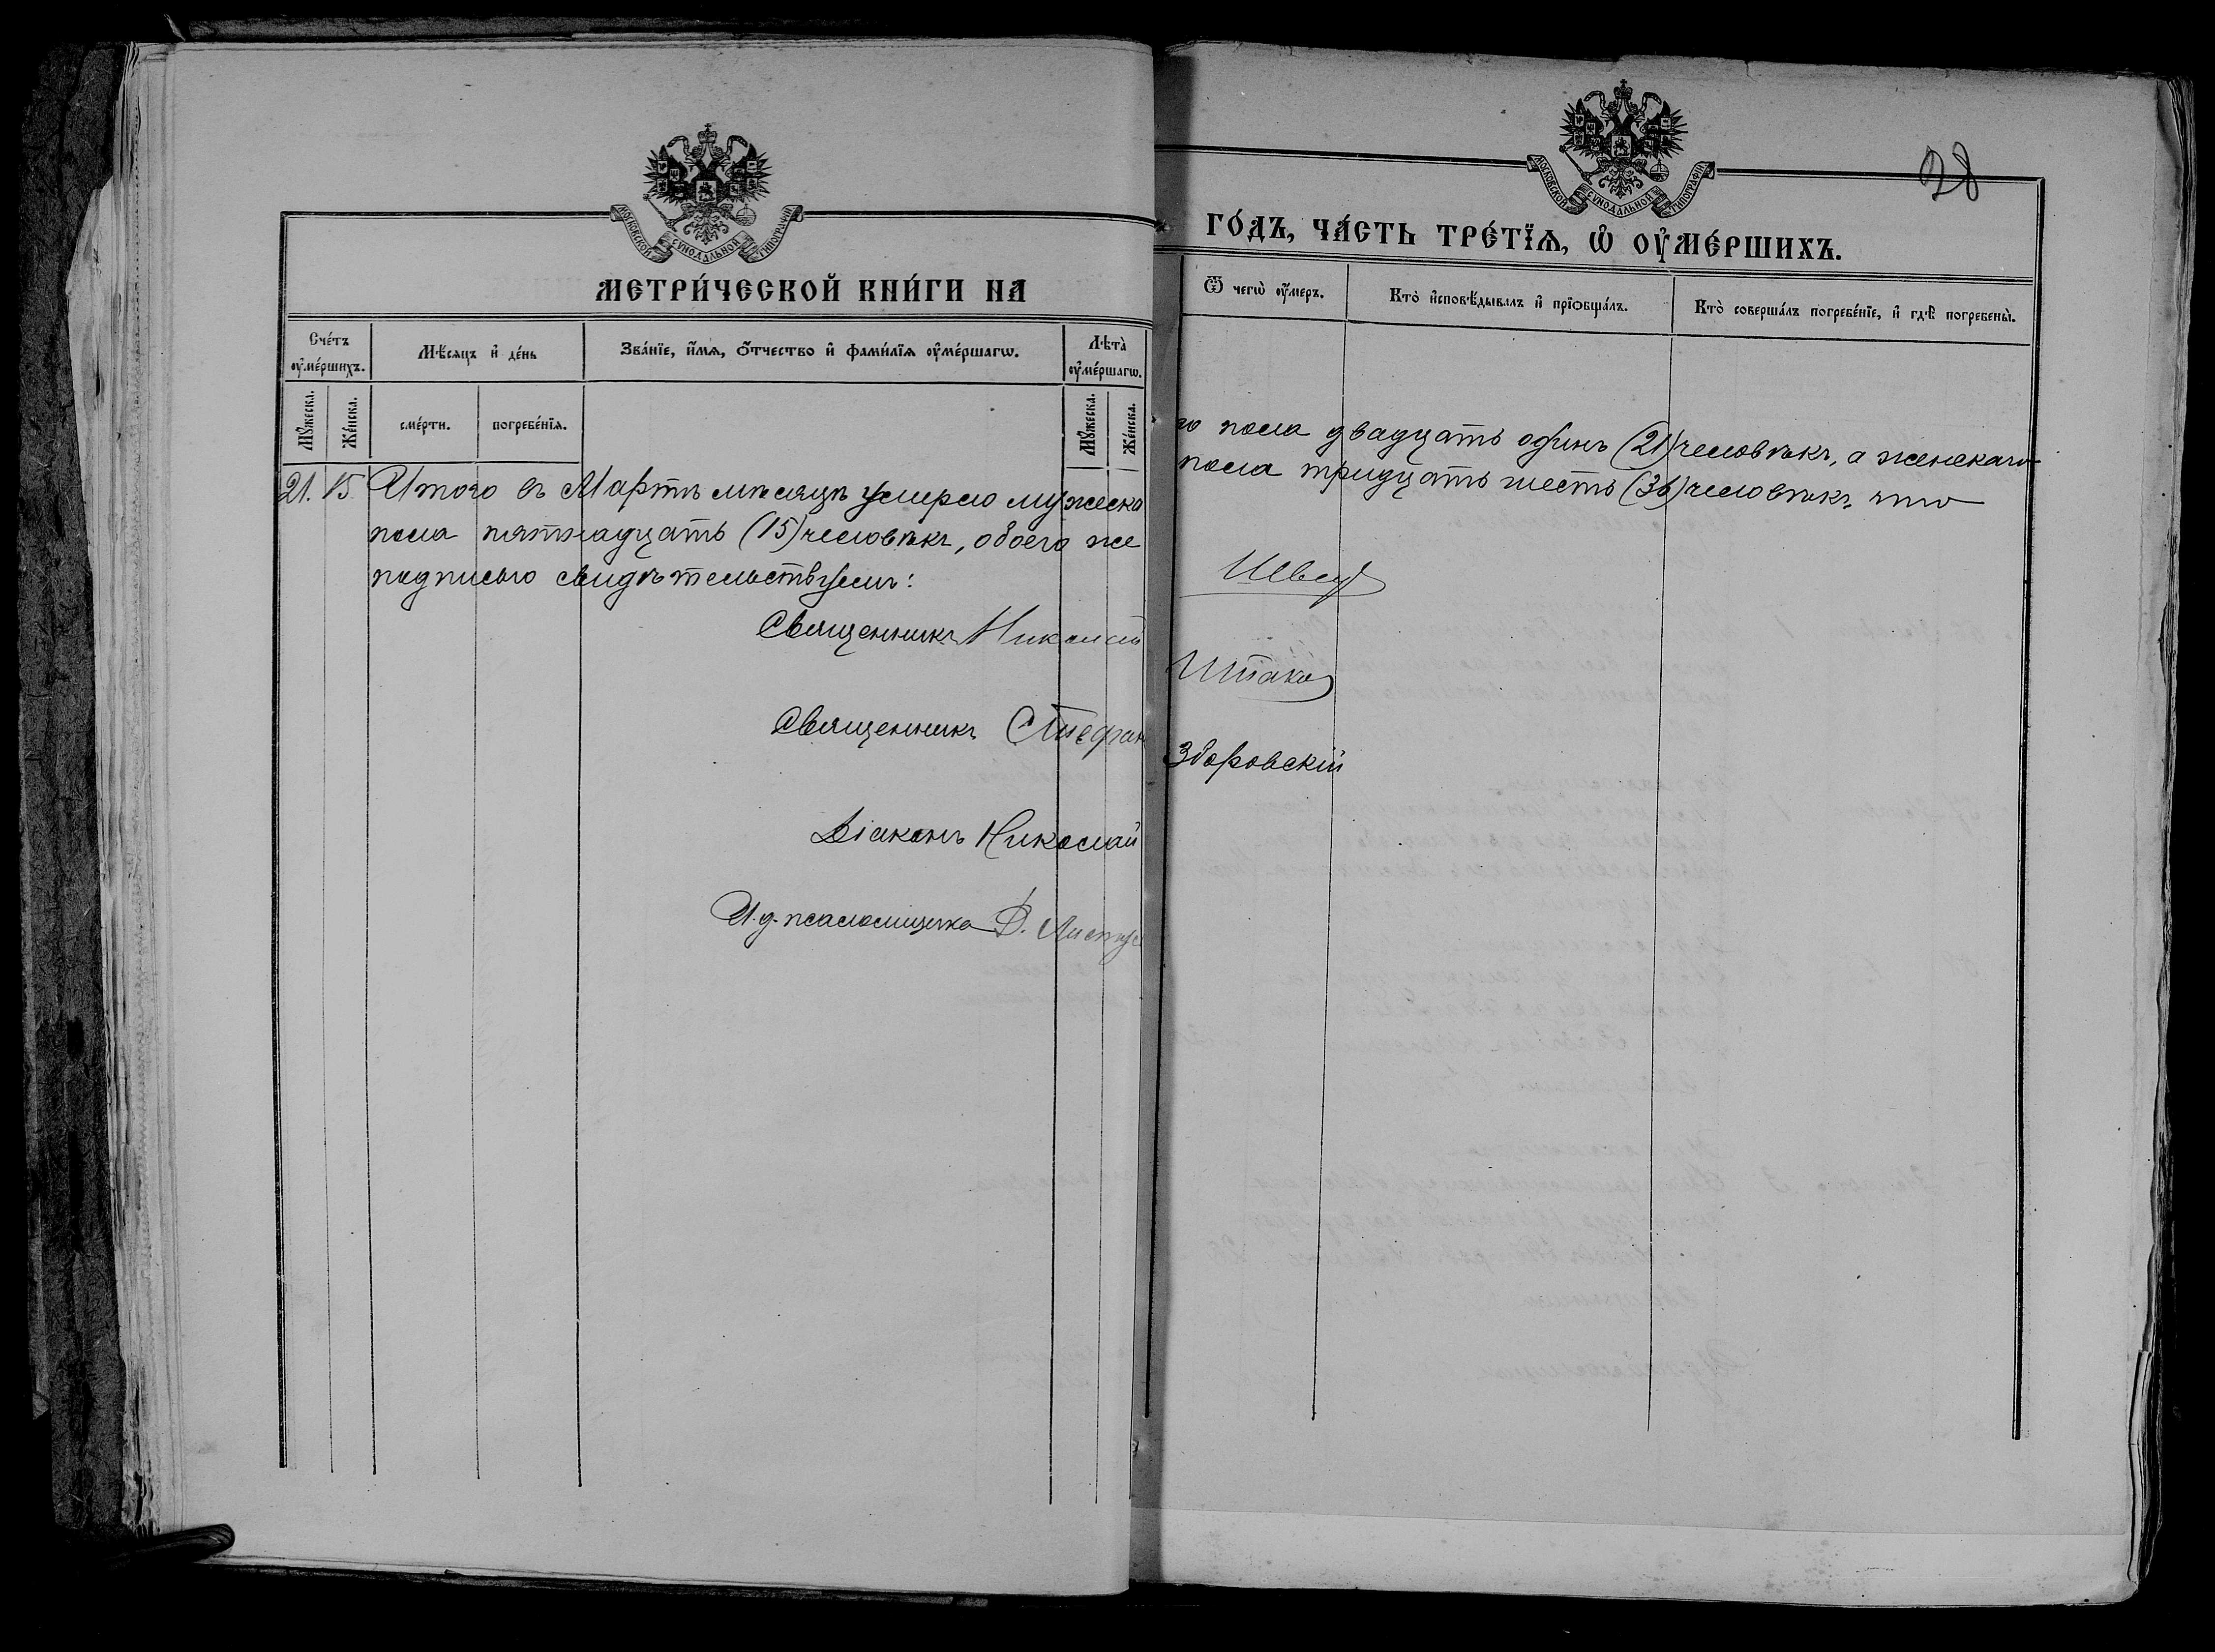 МОСКОВСКОЙ СѴНОДАЛЬНОЙ ТИПОГРАФІИ
МЕТРИ́ЧЕСКОЙ КНИ́ГИ НА
Сче́тъ ᲂу҆ме́ршихъ.
Мѣ́сяцъ и҆ де́нь
Зва́нїе, и҆́мѧ, ѻ҆́тчество и҆ фами́лїѧ ᲂу҆ме́ршагѡ.
Лѣта̀ ᲂу҆ме́ршагѡ.
Мꙋ́жеска.
Же́нска.
сме́рти.
погребе́нїѧ.
Мꙋ́жеска.
Же́нска.
21. 15. Итого въ Мартѣ мѣсяцѣ умерло мужеска
пола пятнадцать (15) человѣкъ, обоего же
подписью свидѣтельствуемъ:
Священникъ Николай
Священникъ Стефан
Діаконъ Николай
И.д. псаломщика
28
МОСКОВСКОЙ СѴНОДАЛЬНОЙ ТИПОГРАФІИ
ГО́ДЪ, ЧА́СТЬ ТРЕ́ТЇѦ, Ѡ҆ ОУ҆МЕ́РШИХЪ.
Ѿ чегѡ̀ ᲂу҆́меръ.
Кто̀ и҆сповѣ́дывалъ и҆ прїѻбща́лъ.
Кто̀ соверша́лъ погребе́нїе, и҆ гдѣ̀ погребены̀.
го пола двадцать одинъ (21) человѣкъ, а женскаго
пола тридцать шесть (36) человѣкъ, что
Швец
Штака
Зборовскій